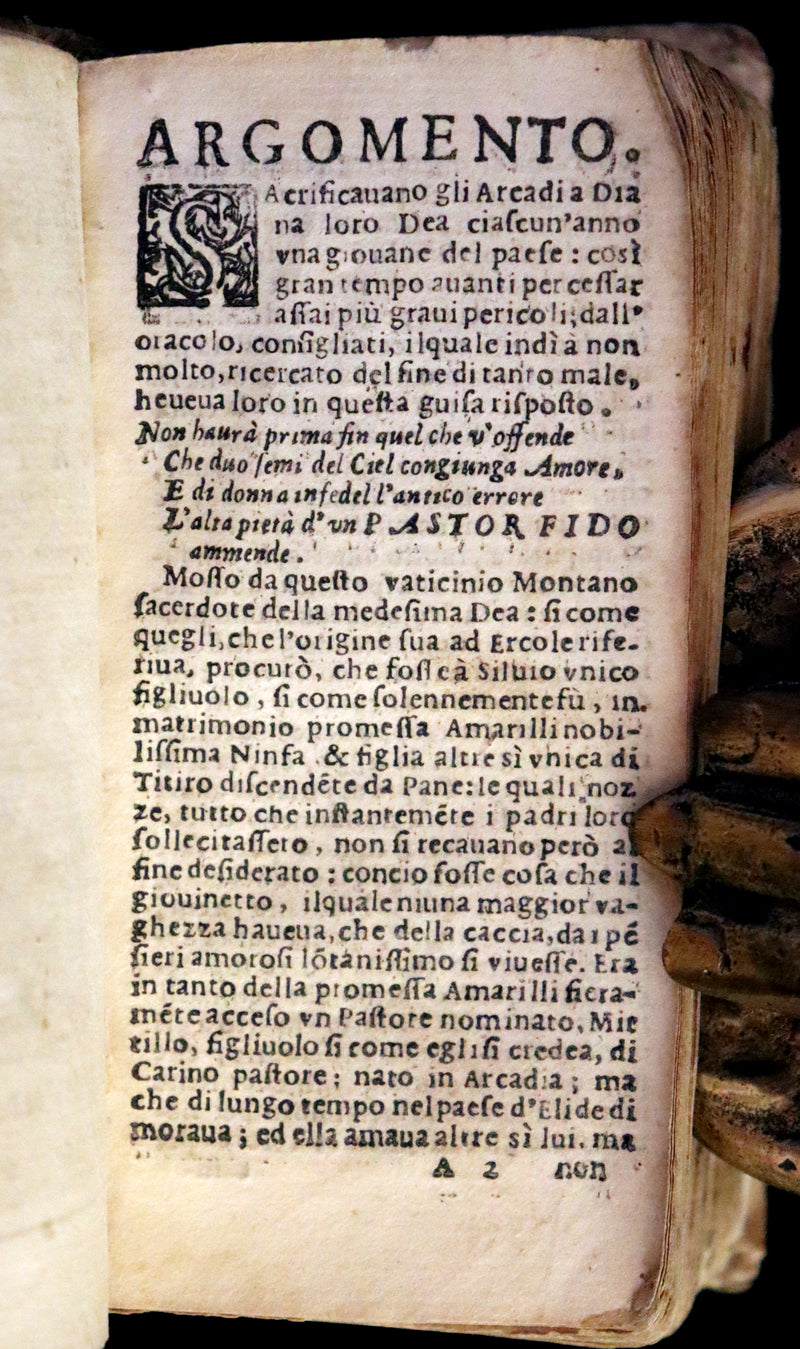 ARGOMENTO.
SAcrificauano gli Arcadi a Dia
na loro Dea ciaſcun'anno
vna giouane del paeſe : così
gran tempo auanti per ceſſar
aſſai più graui pericoli; dall'
oracolo, conſigliati, ilquale indì à non
molto, ricercato del fine di tanto male,
heueua loro in queſta guiſa riſpoſto.
Non haurà prima fin quel che v'offende
Che duo ſemi del Ciel congiunga Amore,
E di donna infedel l'antico errore
L'alta pietà d'vn PASTOR FIDO
ammende.
Moſſo da queſto vaticinio Montano
ſacerdote della medeſima Dea : ſi come
quegli, che l'origine ſua ad Ercole rife-
riua, procurò, che foſſe à Siluio vnico
figliuolo, ſi come ſolennemente fù, in
matrimonio promeſſa Amarilli nobi-
liſſima Ninfa & figlia altre sì vnica di
Titiro diſcendẽte da Pane: le quali noz
ze, tutto che inſtantemẽte i padri loro
ſollecitaſſero, non ſi recauano però al
fine deſiderato : concio foſſe coſa che il
giouinetto, ilquale niuna maggior va-
ghezza haueua, che della caccia, da i pẽ
ſieri amoroſi lõtaniſſimo ſi viueſſe. Era
in tanto della promeſſa Amarilli fiera-
mẽte acceſo vn Paſtore nominato, Mir
tillo, figliuolo ſi come egli ſi credea, di
Carino paſtore; nato in Arcadia; ma
che di lungo tempo nel paeſe d'Elide di
moraua; ed ella amaua altre sì lui. ma
A 2 non